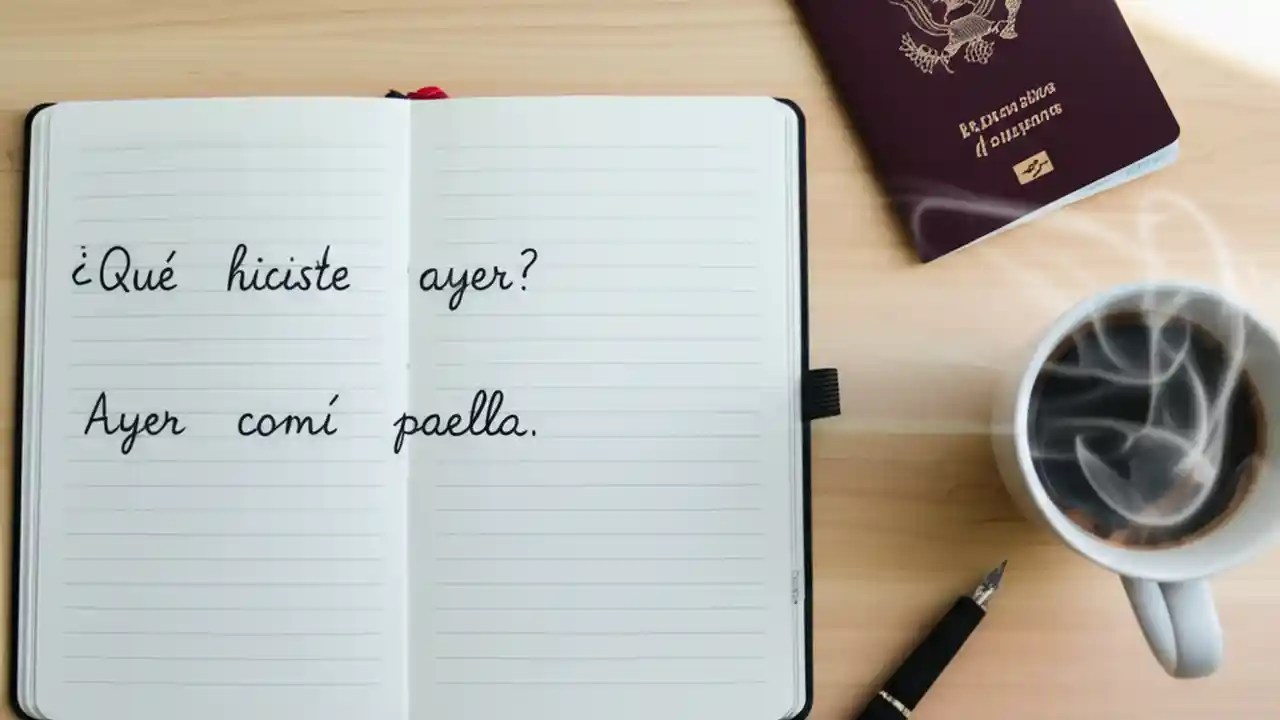 ¿Qué hiciste ayer?
Ayer comí paella.